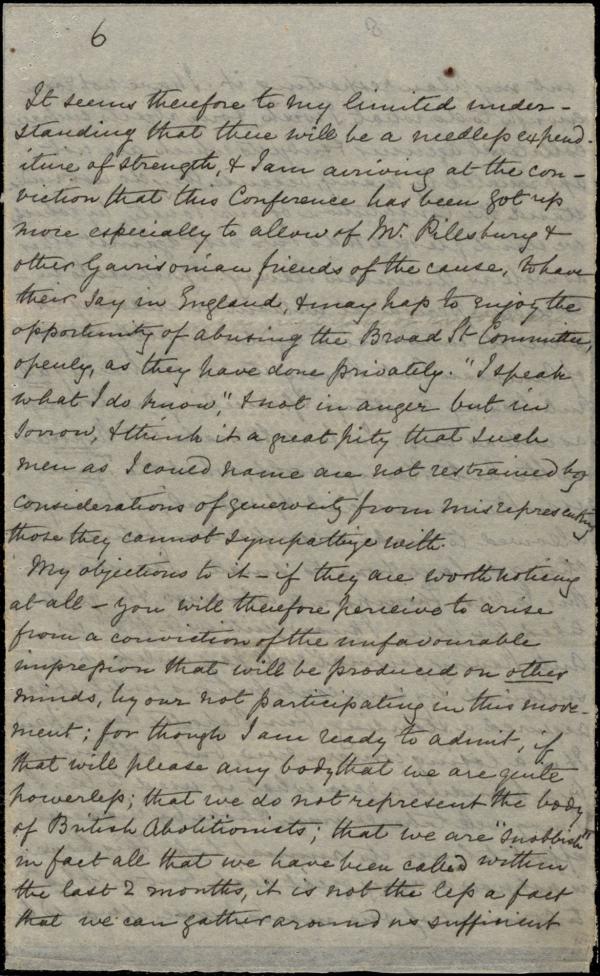 6
It seems therefore to my limited under-
standing that there will be a needless expend-
iture of strength, & I am arriving at the con-
viction that this Conference has been got up
more especially to allow of Mr. Pillsbury &
other Garrisonian friends of the cause, to have
their say in England, & may hap to enjoy the
opportunity of abusing the Broad St Committee,
openly, as they have done privately. "I speak
what I do know," & not in anger but in
sorrow, & think it a great pity that such
men as I could name are not restrained by
considerations of generosity from misrepresenting
those they cannot sympathize with.
My objections to it – if they are worth noticing
at all – you will therefore perceive to arise
from a conviction of the unfavourable
impression that will be produced on other
minds, by our not participating in this move-
ment; for though I am ready to admit, if
that will please any body that we are quite
powerless; that we do not represent the body
of British Abolitionists; that we are "snobbish"
in fact all that we have been called within
the last 2 months, it is not the less a fact
that we can gather around us sufficient